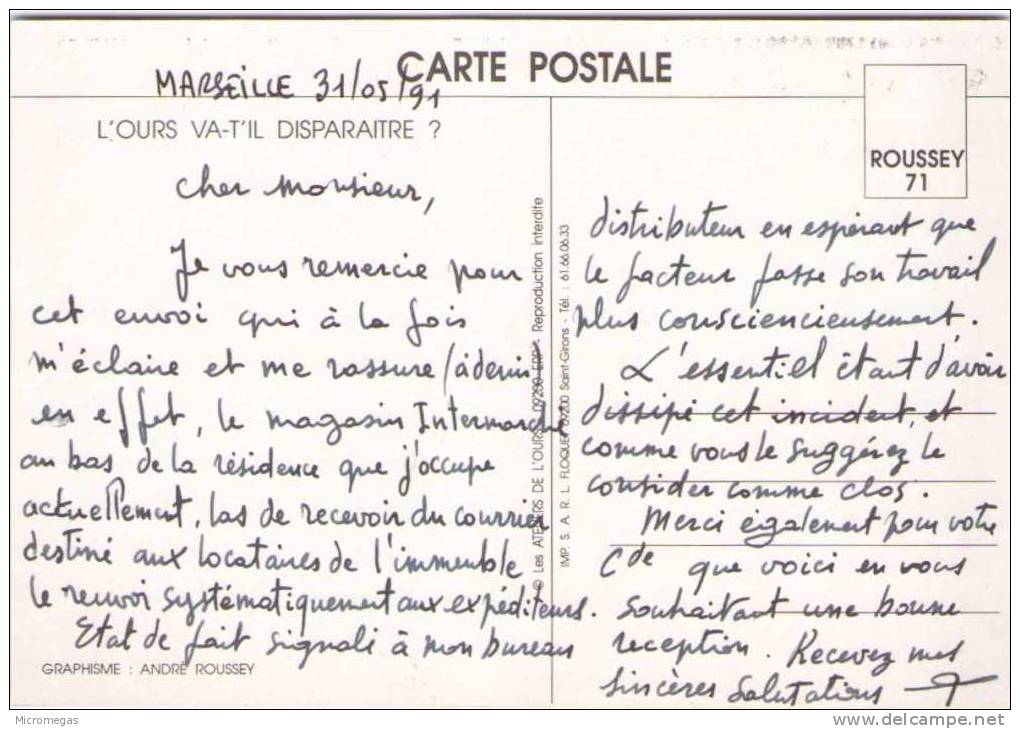 CARTE POSTALE
MARSEILLE 31/05/91
L'OURS VA-T'IL DISPARAITRE ?
ROUSSEY
71
Cher Monsieur,
Je vous remercie pour
cet envoi qui à la fois
m'éclaire et me rassure
en effet, le magasin Intermarché
au bas de la résidence que j'occupe
actuellement, las de recevoir du courrier
destiné aux locataires de l'immeuble
le renvoi systématiquement aux expéditeurs.
Etat de fait signalé à mon bureau
GRAPHISME : ANDRÉ ROUSSEY
© Les ATELIERS DE L'OURS 09200 ERP - Reproduction interdite
IMP. S. A. R. L. FLOQUET 09200 Saint-Girons - Tél. : 61.66.06.33
distributeur en espérant que
le facteur fasse son travail
plus consciencieusement.
L'essentiel étant d'avoir
dissipé cet incident, et
comme vous le suggérez le
consider comme clos.
Merci également pour votre
Cde que voici en vous
souhaitant une bonne
reception. Recevez mes
sincères salutations
Micromegas
delcampe.net